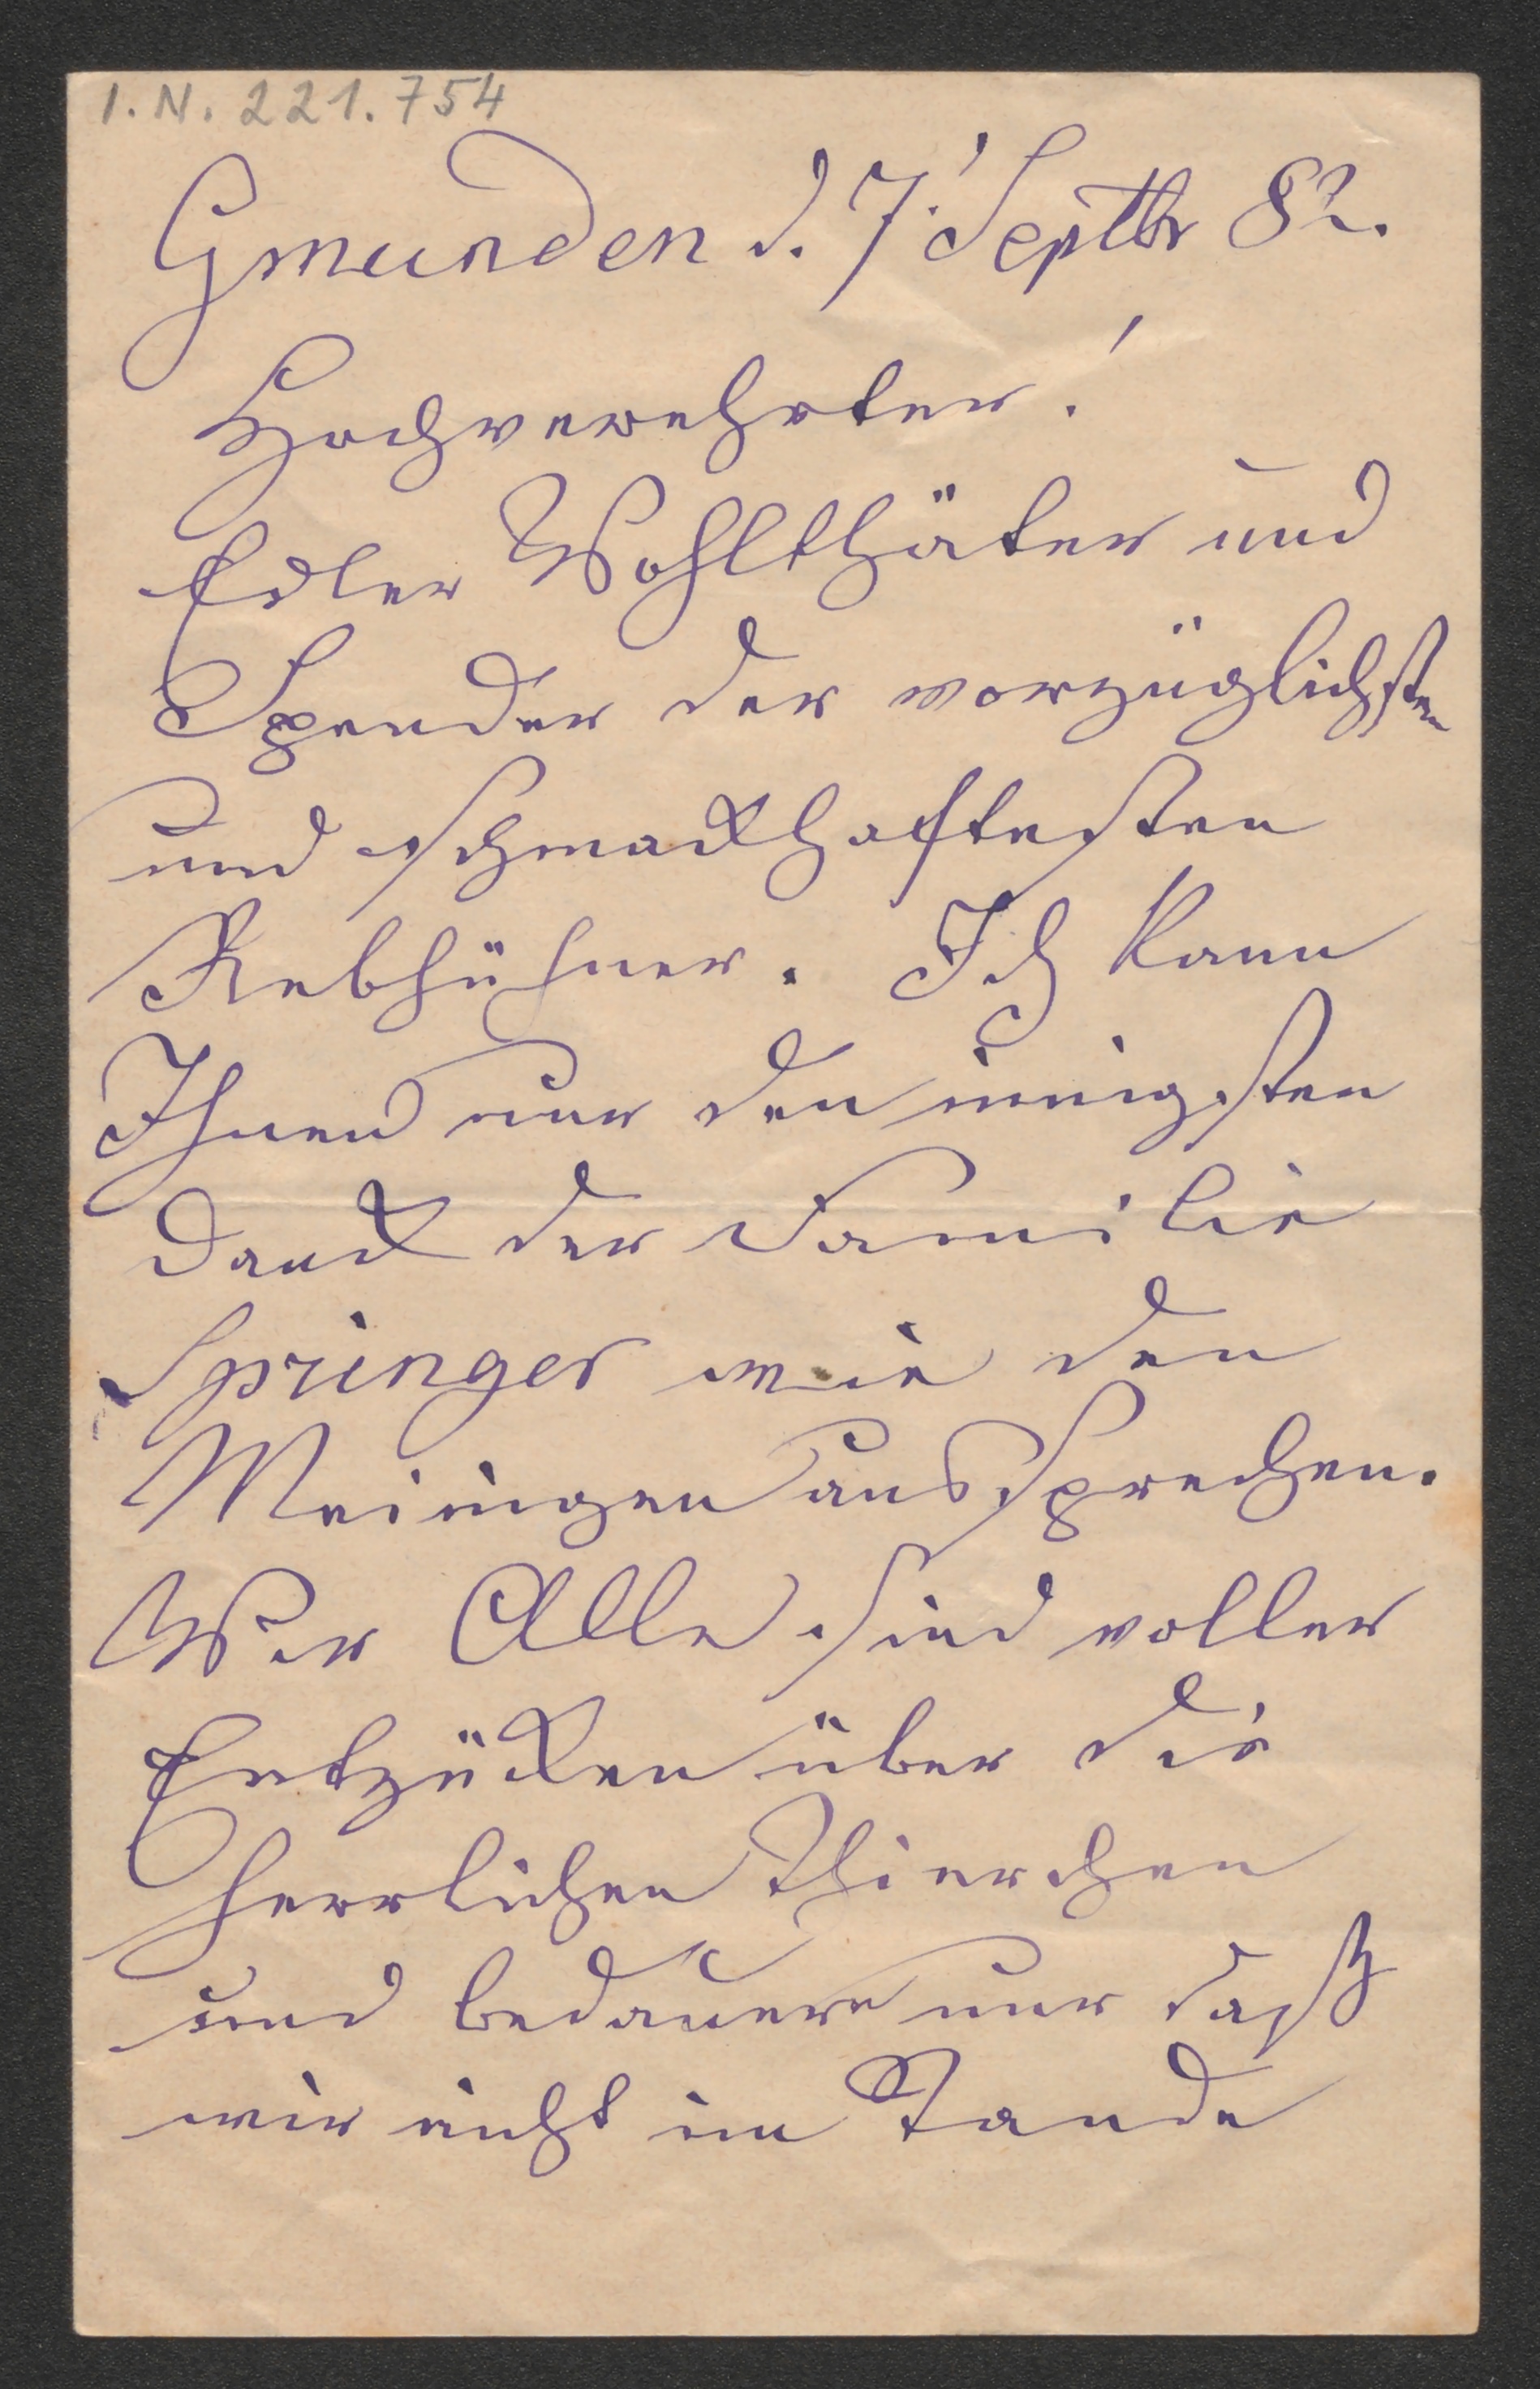 I.N. 221.754
Gmunden d. 7. Septbr 82.
Hochverehrter!
Edler Wohlthäter und
Spender der vorzüglichsten
und schmackhaftesten
Rebhühner. Ich kann
Ihnen nur den innigsten
Dank der Familie
Springer wie den
Meinigen aussprechen.
Wir Alle sind voller
Entzücken über die
herrlichen Thierchen
und bedauern nur daß
wir nicht im Stande